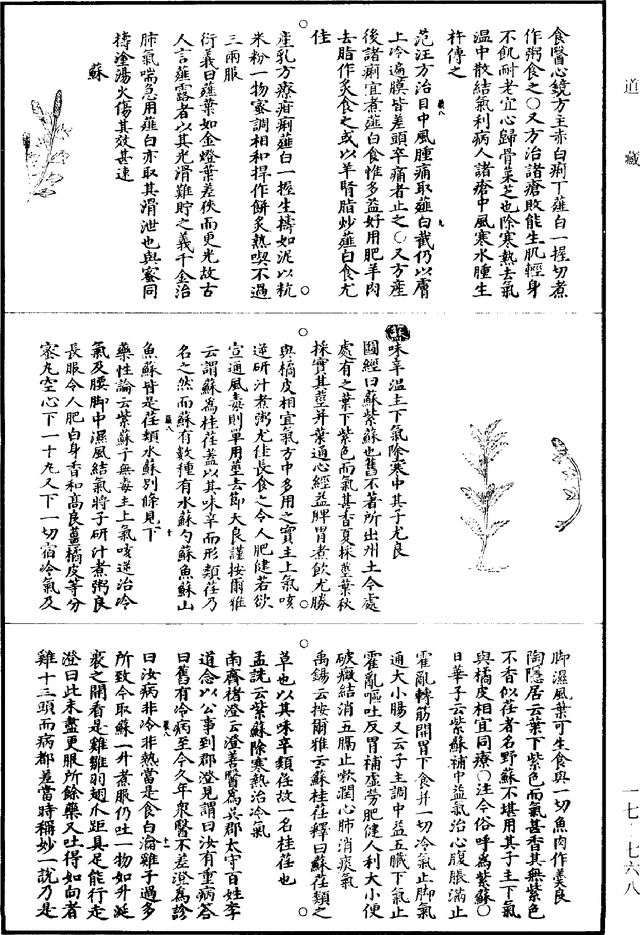 道藏
食醫心鏡方主赤白痢下薤白一握切煮
作粥食之○又方治諸瘡敗能生肌輕身
不飢耐老宜心歸骨菜芝也除寒熱去氣
溫中散結氣利病人諸瘡中風寒水腫生
杵傅之
范汪方治目中風腫痛取薤白截仍以膚
上冷遍膜皆差頭卒痛者止之○又方産
後諸痢宜煮薤白食惟多益好用肥羊肉
去脂作炙食之或以羊腎脂炒薤白食尤
佳
産乳方療疳痢薤白一握生擣如泥以秔
米粉一物蜜調相和捍作餅炙熟喫不過
三兩服
衍義曰薤葉如金燈葉差狹而更光故古
人言薤露者以其光滑難貯之義千金治
肺氣喘急用薤白亦取其滑泄也與蜜同
擣塗湯火傷其效甚速
蘇
蘇味辛溫主下氣除寒中其子尤良
圖經曰蘇紫蘇也舊不著所出州土今處
處有之葉下紫色而氣甚香夏採莖葉秋
採實其莖并葉通心經益脾胃煮飲尤勝
與橘皮相宜氣方中多用之實主上氣咳
逆研汁煮粥尤佳長食之令人肥健若欲
宣通風毒則單用莖去節大良謹按爾雅
云謂蘇爲桂荏蓋以其味辛而形類荏乃
名之然而蘇有數種有水蘇勺蘇魚蘇山
魚蘇皆是荏類水蘇別條見下
藥性論云紫蘇子無毒主上氣咳逆治冷
氣及腰脚中濕風結氣將子研汁煮粥良
長服令人肥白身香和高良薑橘皮等分
蜜丸空心下一十丸又下一切宿冷氣及
脚濕風葉可生食與一切魚肉作羹良
陶隱居云葉下紫色而氣甚香其無紫色
不香似荏者名野蘇不堪用其子主下氣
與橘皮相宜同療○注今俗呼爲紫蘇○
日華子云紫蘇補中益氣治心腹脹滿止
霍亂轉筋開胃下食并一切冷氣止脚氣
通大小腸又云子主調中益五臟下氣止
霍亂嘔吐反胃補虛勞肥健人利大小便
破癥結消五膈止嗽潤心肺消痰氣
禹錫云按爾雅云蘇桂荏釋曰蘇荏類之
草也以其味辛類荏故一名桂荏也
孟詵云紫蘇除寒熱治冷氣
南齊褚澄云澄善醫爲吳郡太守百姓李
道念以公事到郡澄見謂曰汝有重病荅
曰舊有冷病至今久年衆醫不差澄爲診
曰汝病非冷非熱當是食白瀹雞子過多
所致令取蘇一升煮服仍吐一物如升涎
裹之開看是雞雛羽翅爪距具足能行走
澄曰此未盡更服所餘藥又吐得如向者
雞十三頭而病都差當時稱妙一說乃是
一七·七六八